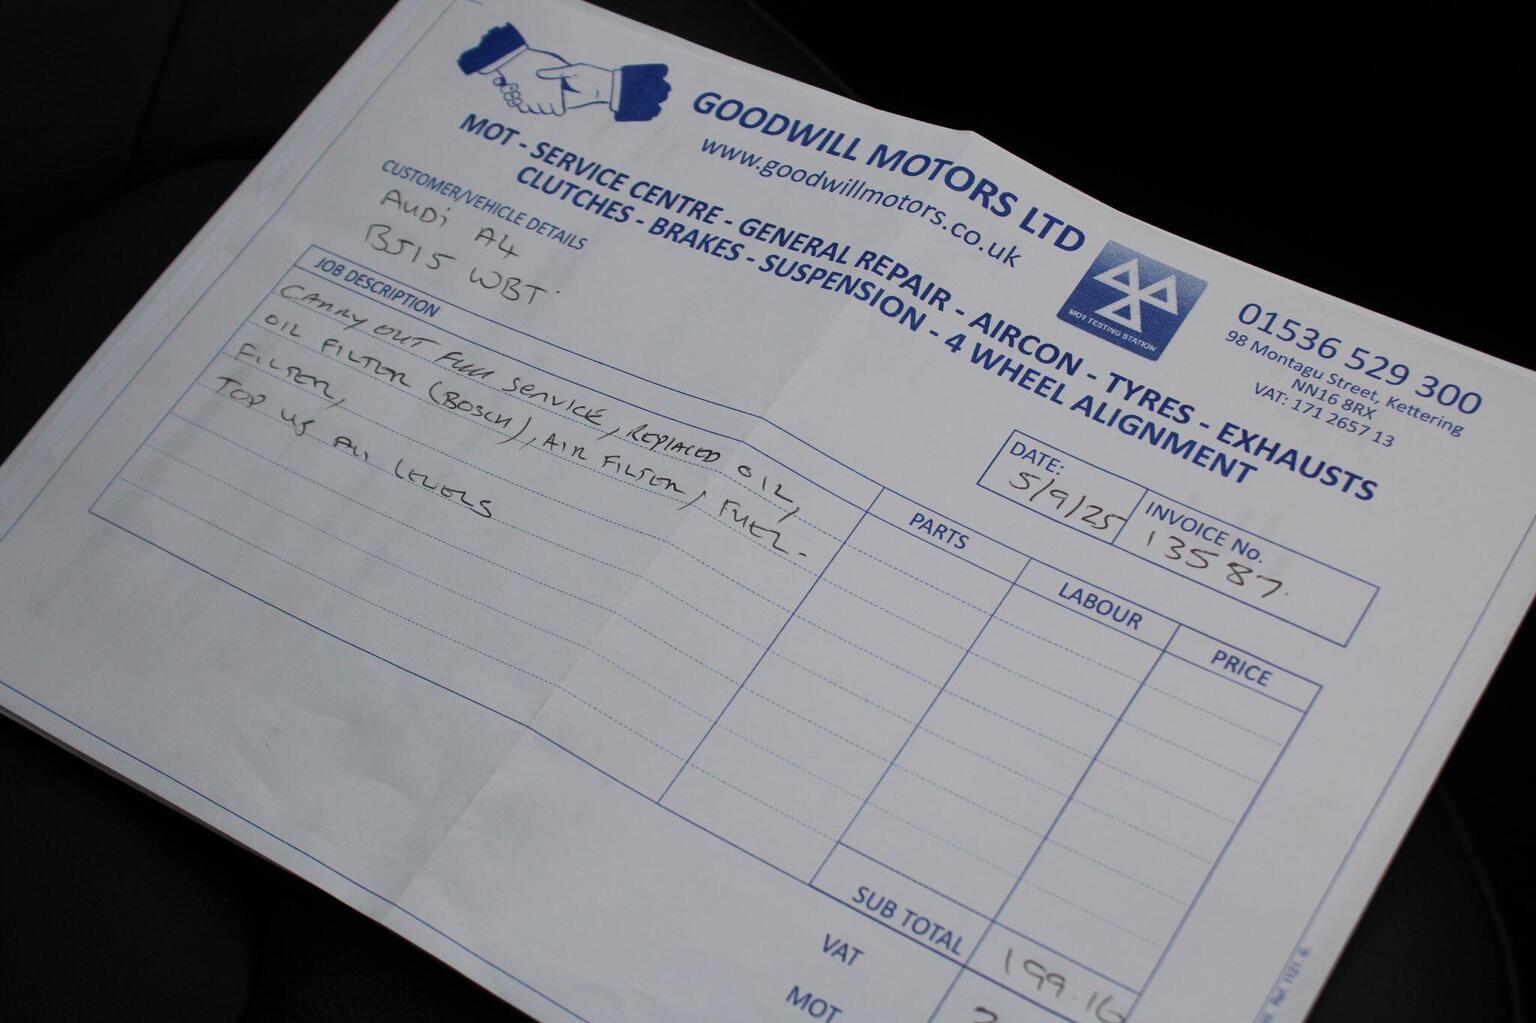 GOODWILL MOTORS LTD
www.goodwillmotors.co.uk
MOT - SERVICE CENTRE - GENERAL REPAIR - AIRCON - TYRES - EXHAUSTS
CLUTCHES - BRAKES - SUSPENSION - 4 WHEEL ALIGNMENT
MOT TESTING STATION
01536 529 300
98 Montagu Street, Kettering
NN16 8RX
VAT: 171 2657 13
CUSTOMER/VEHICLE DETAILS
AUDi A4
BJ15 WBT
DATE:
5/9/25
INVOICE No.
13587
JOB DESCRIPTION
PARTS
LABOUR
PRICE
CARRY OUT FULL SERVICE, REPLACED OIL,
OIL FILTER (BOSCH), AIR FILTER, FUEL
FILTER,
TOP UP ALL LEVELS
SUB TOTAL
199.16
VAT
MOT